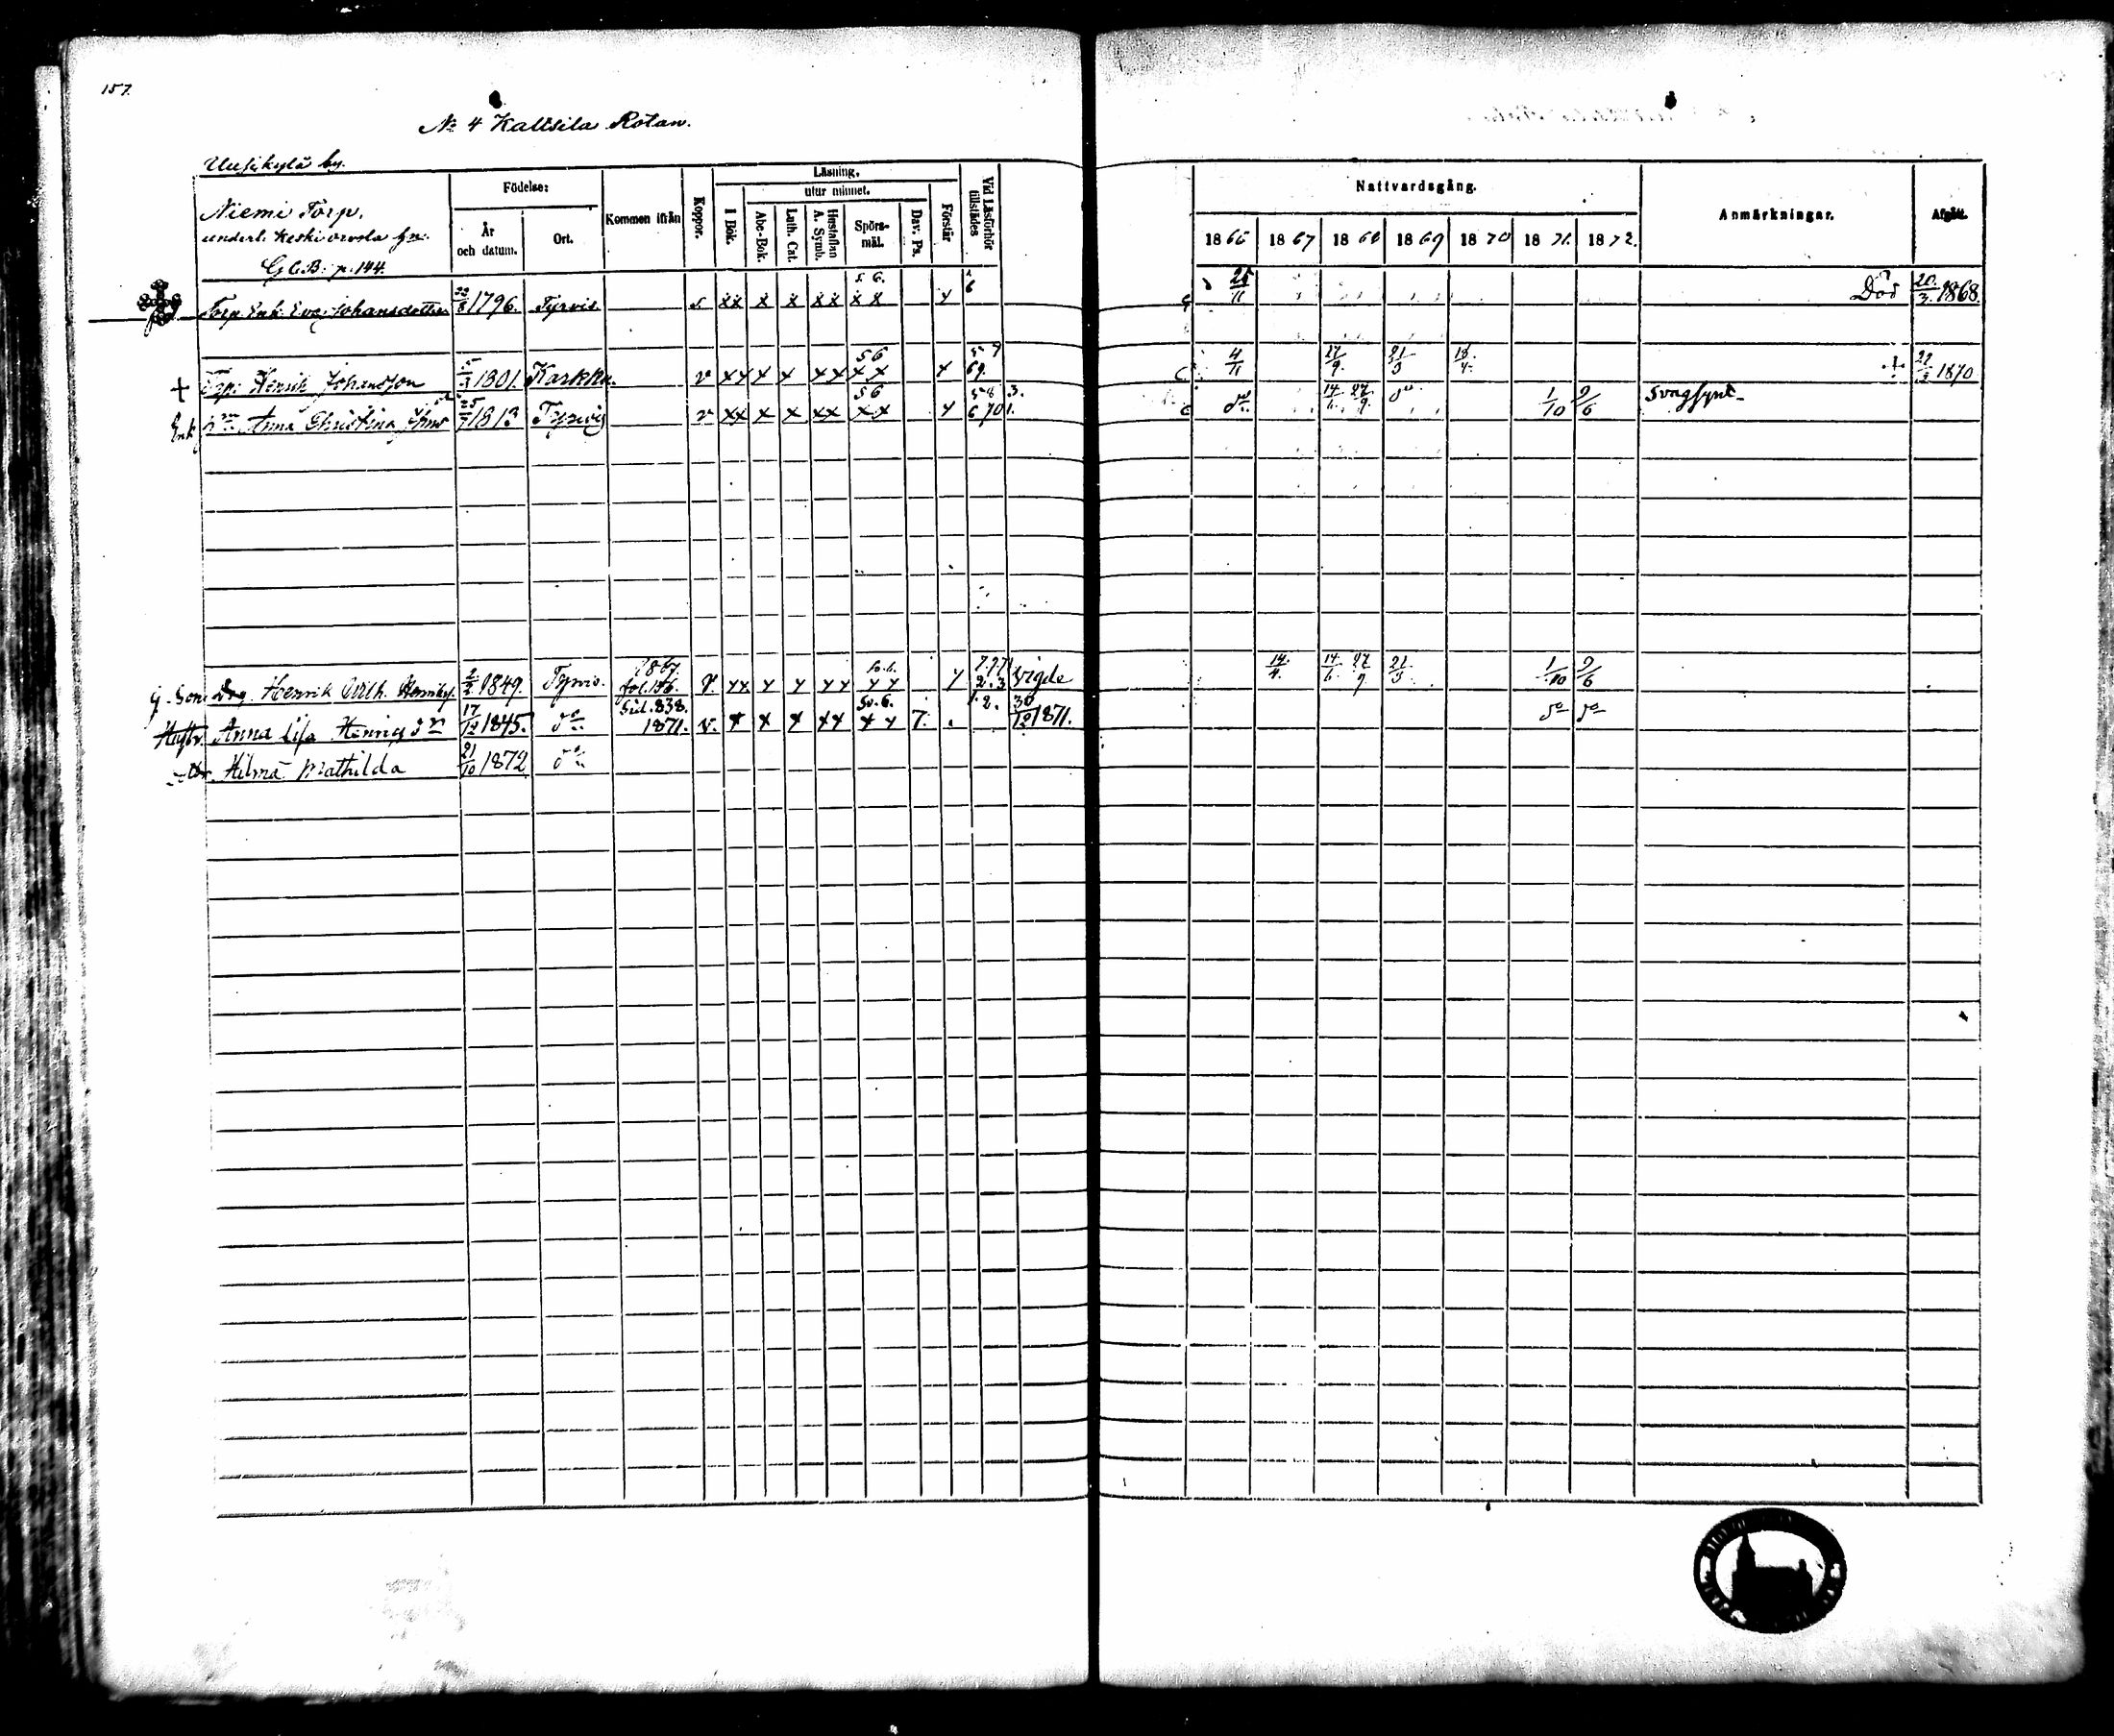 157.
No 4 Kaltsila Rotan.
Uusikylä by.
Niemi Torp,
underl. Keski Orvola hn:
G C.B: p. 144.
Födelse:
År och datum.
Ort.
Kommen ifrån
Koppor.
Läsning.
I Bok.
utur minnet.
Abc-Bok.
Luth. Cat.
Hustaflan A. Symb.
Spörsmål.
Dav. Ps.
Förstår
Vid Läsförhör tillstädes
Nattvardsgång.
1866 1867 1868 1869 1870 1871. 1872.
Anmärkningar.
Afgått.
Torp. Enk. Eva Johansdotter 22/8 1796. Tyrvis s xx x x xx 5. 6. xx y 6 25/11 Död 20/3 1868
Torp: Henrik Johansson 5/3 1801. Karkku. v xx x x xx 56 xx y 5 7 69. 4/11 27/9. 21/3 18/4. 22/3 1870
Enk Anna Christina 25/7 1813 Tyrvis v xx x x xx 56 xx y 5 8 3. 6 701. do 14/6. 27/9. do 1/10 9/6 Svagsynt
G. Son. Drg. Henrik Wilh. Henriks. 2/2 1849. Tyrvis. 1867. fol. 156. v. xx y y yy yy y 7.7.7 2.3 vigde 14/4. 14/6. 27/9 21/3 1/10 9/6
Hustr. Anna Lisa Henriks dr 17/12 1845. do Sid. 838. 1871. v. x x x xx Sv. 6. x y 7. 1. 2. 30/12 1871. do do
dtr. Hilma Mathilda 21/10 1872 do